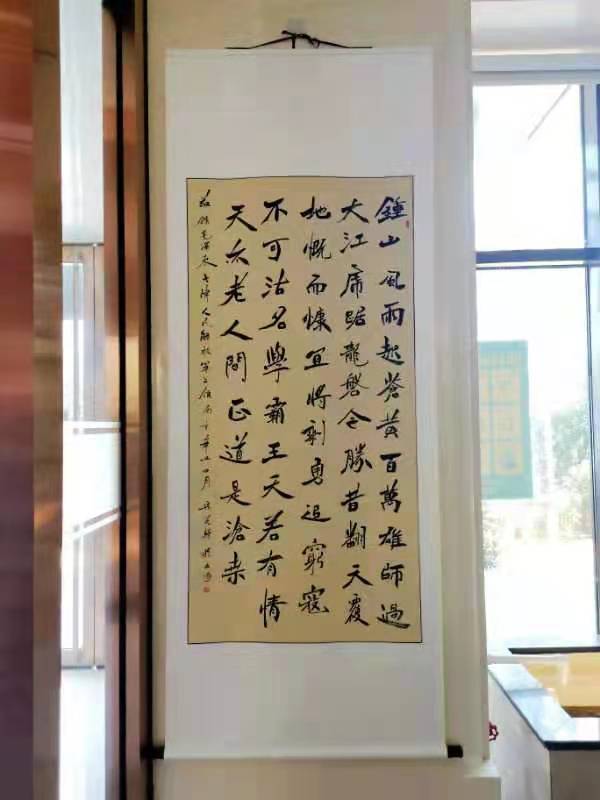 鍾山風雨起蒼黃百萬雄師過
大江虎踞龍盤今勝昔翻天覆
地慨而慷宜將剩勇追窮寇
不可沽名學霸王天若有情
天亦老人間正道是滄桑
錄毛澤東七律人民解放軍占領南京辛丑四月